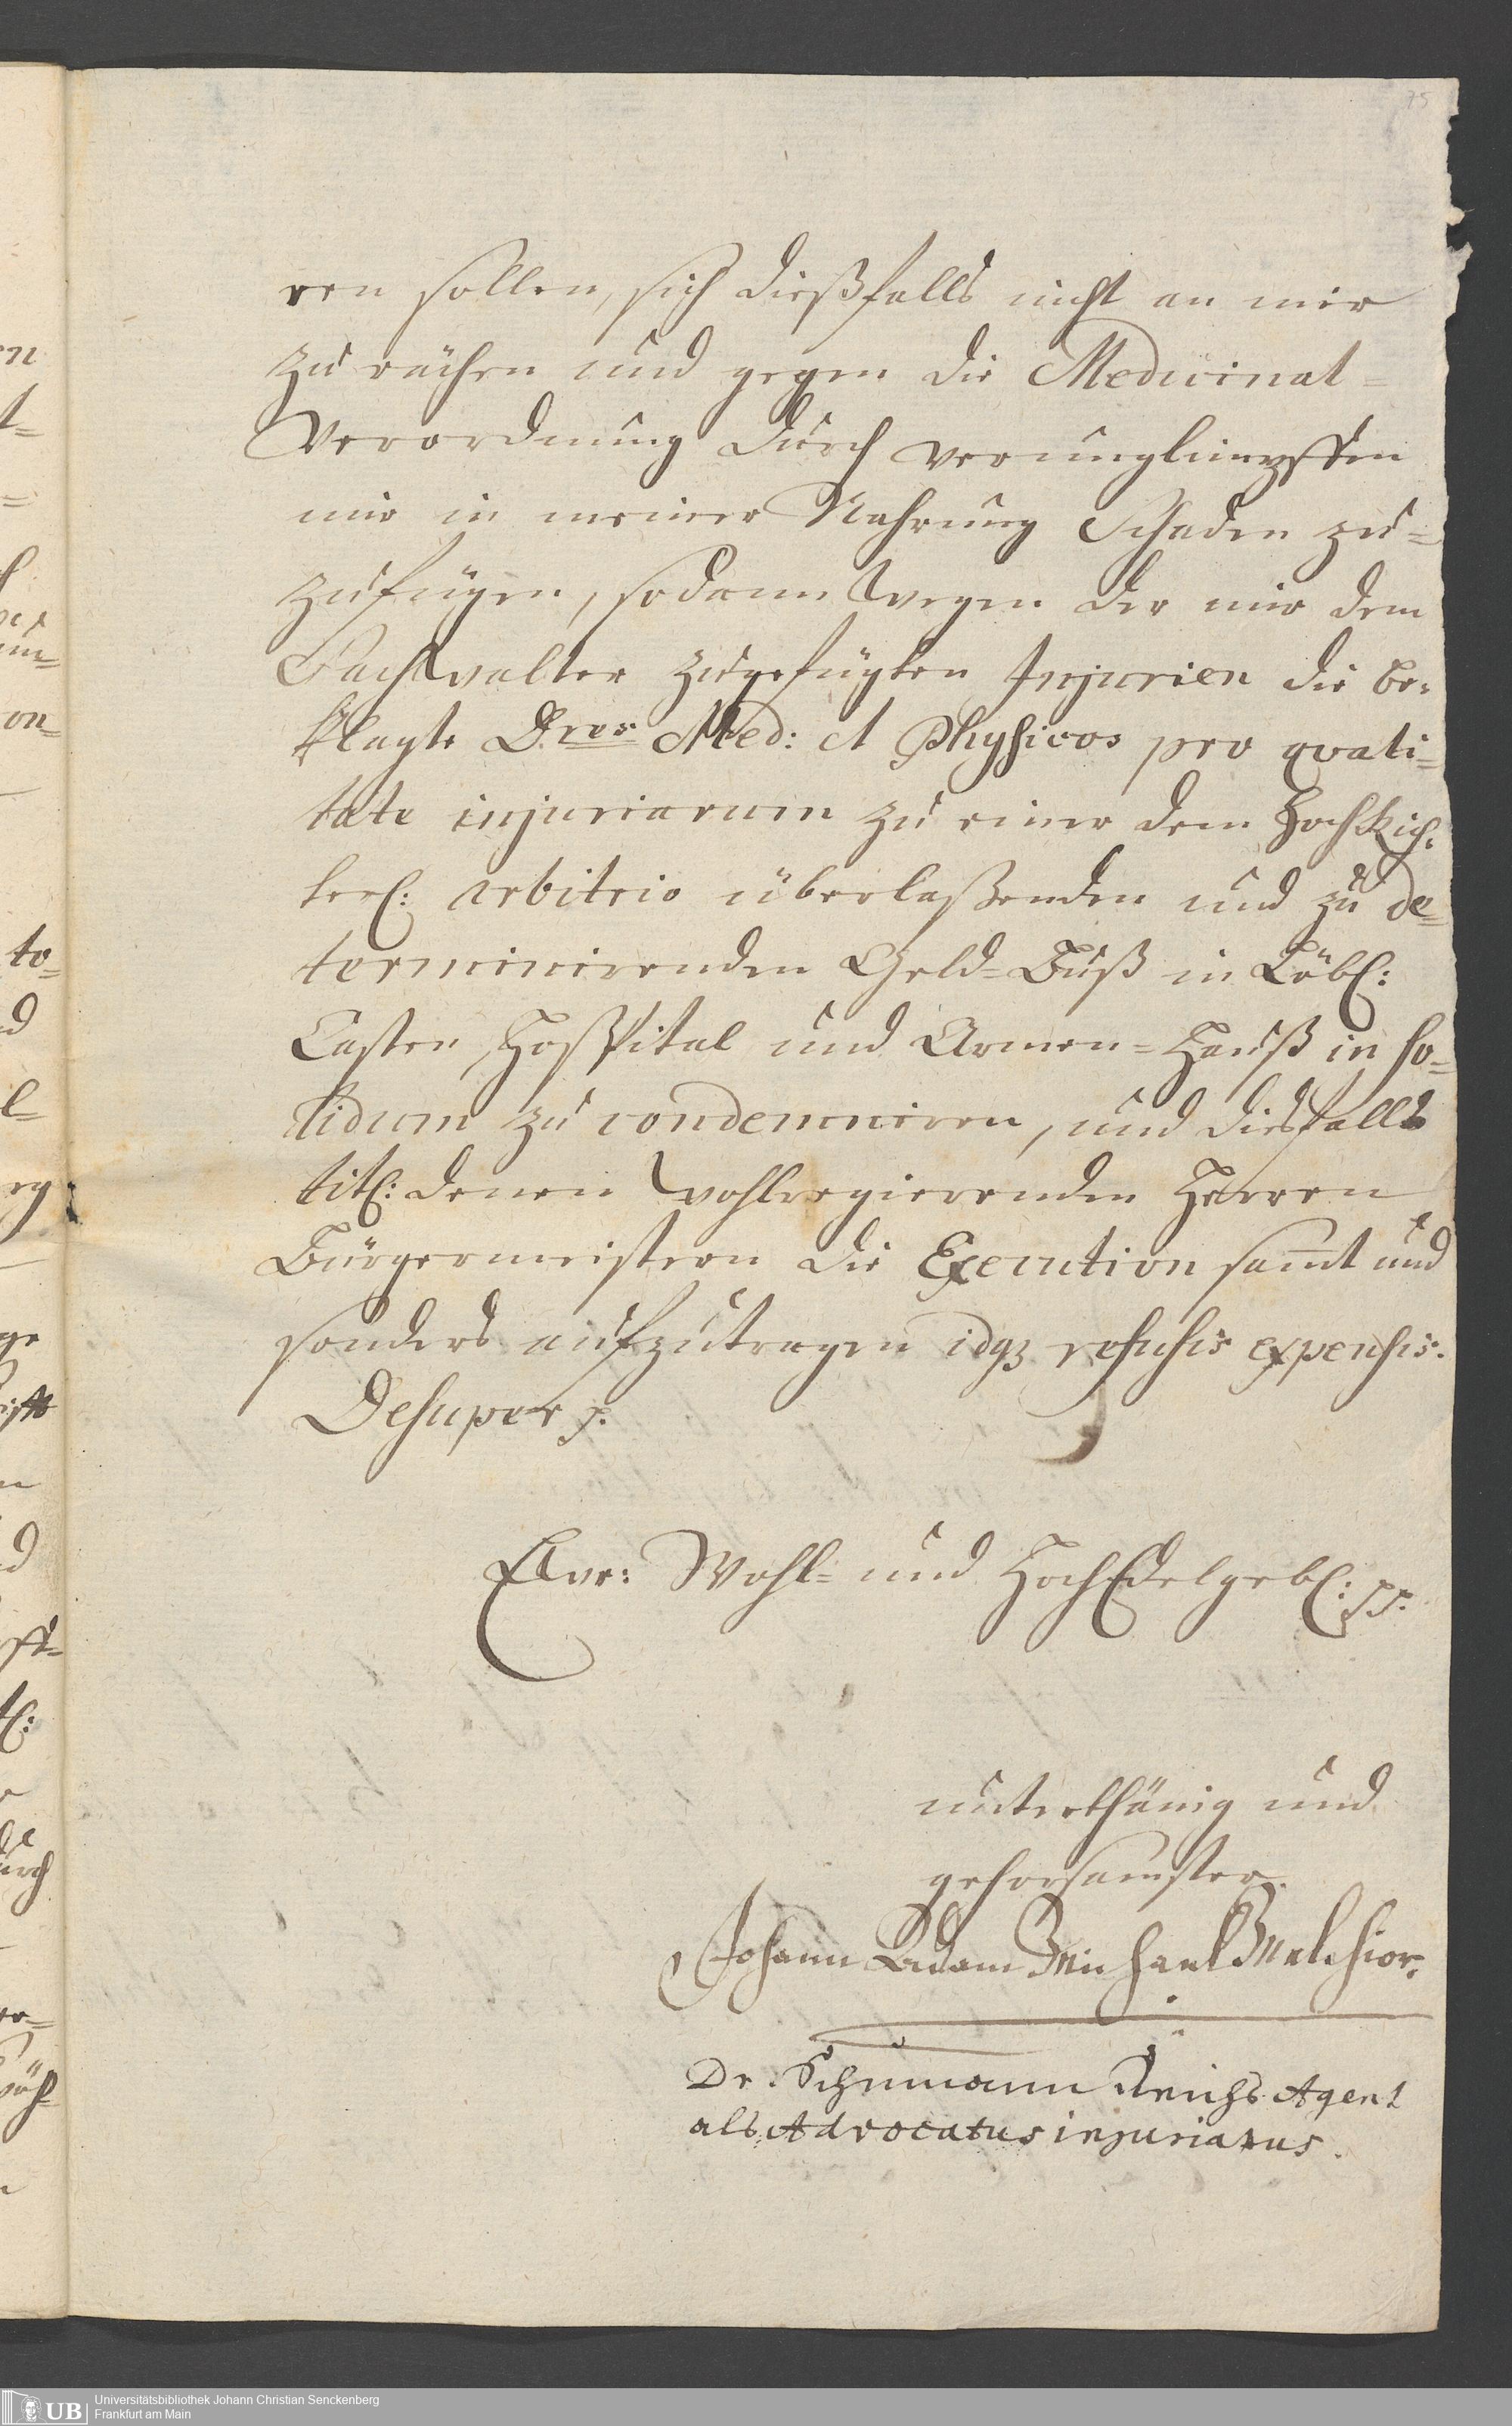 75
ren sollen, sich dießfalls nicht an mir
zu rächen und gegen die Medicinal=
Verordnung durch verunglimpffen
mir in meiner Nahrung Schaden zu=
zufügen, sodann wegen der mir dem
Sachwalter zugefügten Injurien die be=
klagte Dres Med: et Physicos pro quali=
tate injuriarum zu einer dem HochRich=
terl: arbitrio überlaßenden und zu de=
terminirenden Geld=Buß in Löbl:
Casten, Hospital und Armen=Hauß in so=
lidum zu condemniren, und diesfalls
titl: denen Wohlregierenden Herren
Bürgermeistern die Execution samt und
sonders aufzutragen idq3 refusis expensis.
Desuper p.
Ewr: Wohl= und HochEdelgebl: pp.
unterthänig und
gehorsamster
Johann Adam Michael Melchior.
Dr. Schumann Reichs Agent
als Advocatus injuriatus.
UB
Universitätsbibliothek Johann Christian Senckenberg
Frankfurt am Main